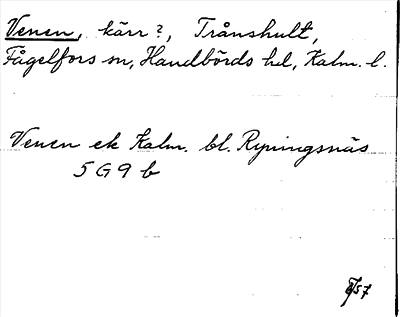 Venen, kärr?, Trånshult,
Fågelfors sn, Handbörds hd, Kalm. l.
Venen ek Kalm. bl. Ryningsnäs
5 G 9 b
57